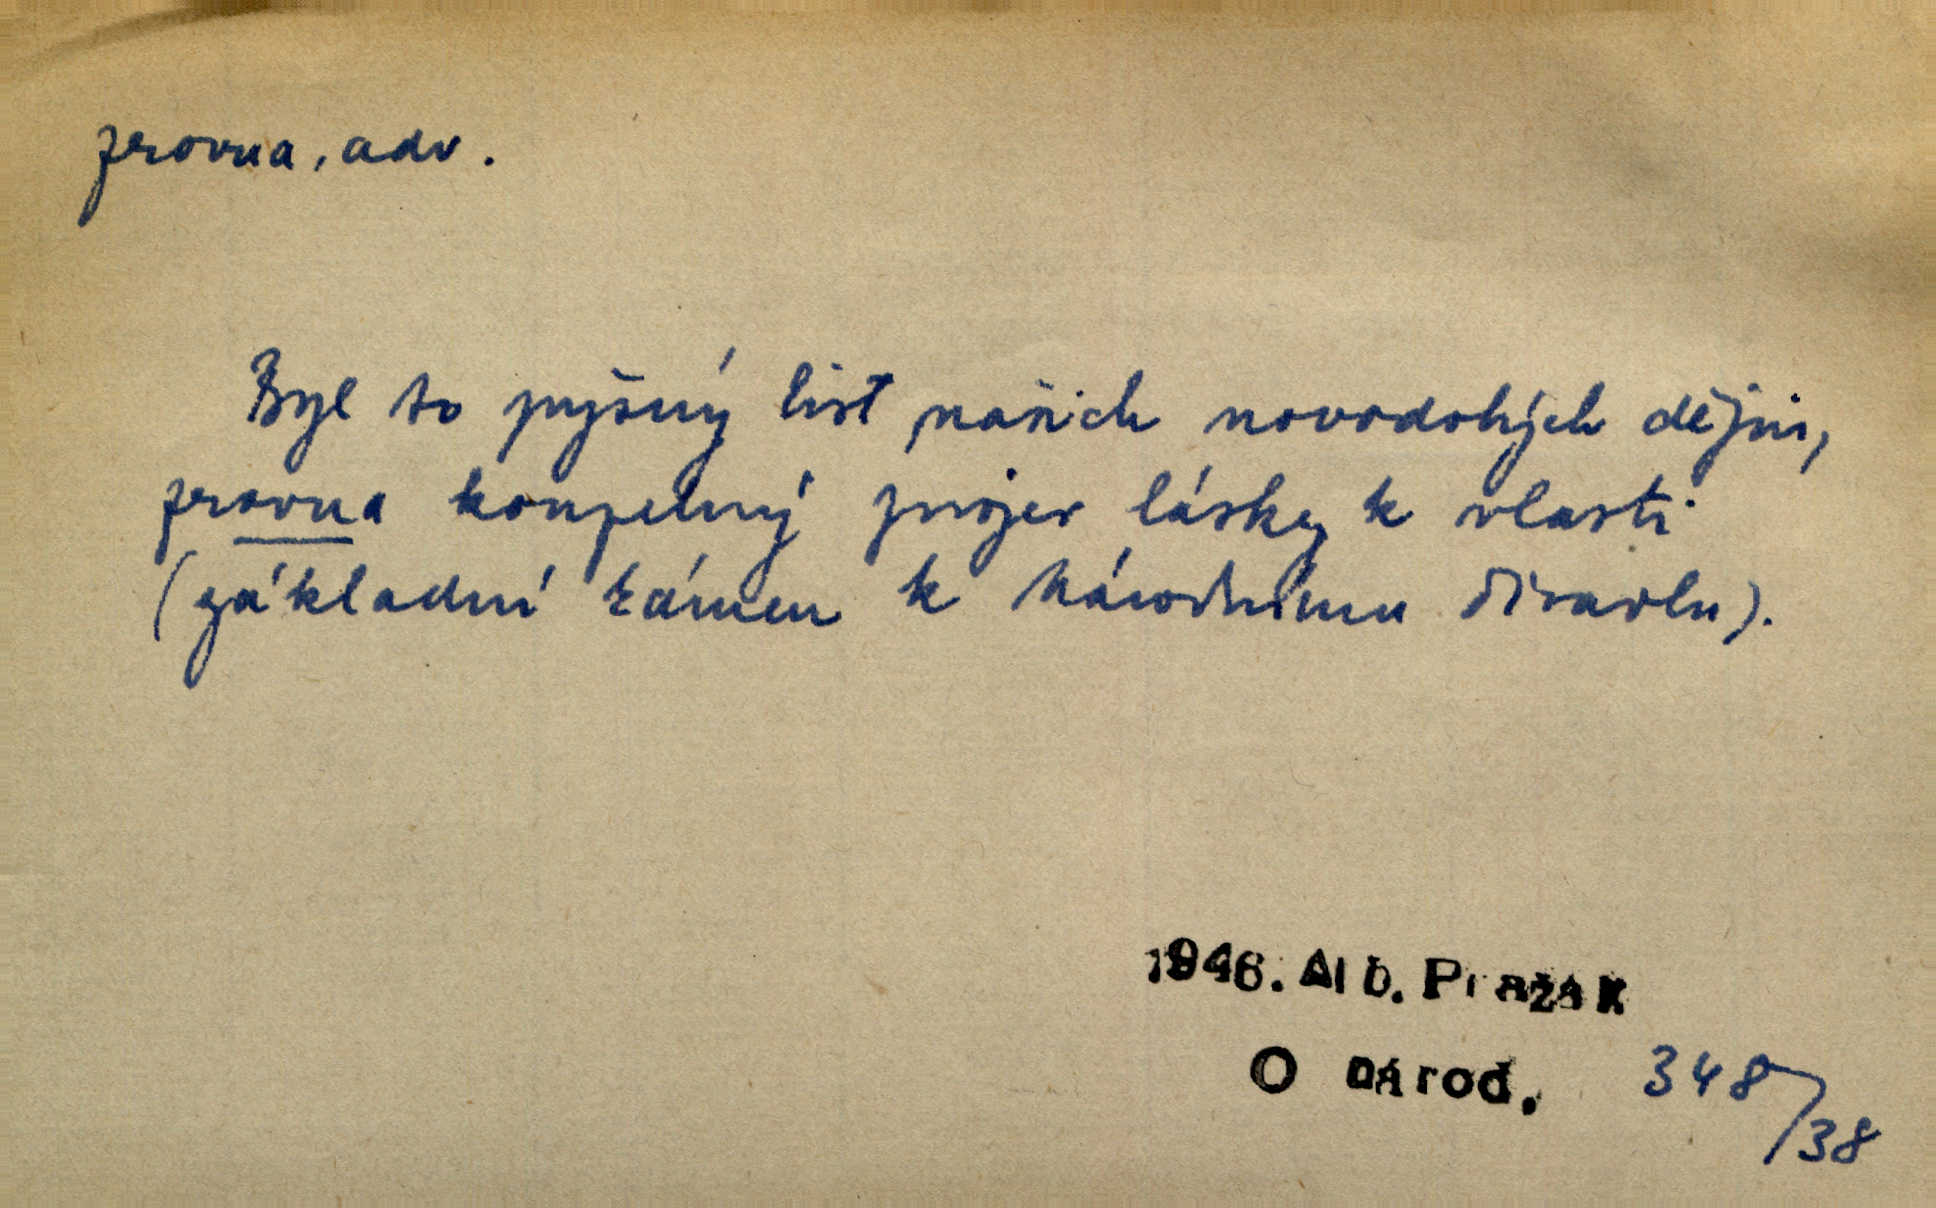 zrovna, adv.
Byl to pyšný list našich novodobých dějin,
zrovna kouzelný projev lásky k vlasti
(základní kámen k Národnímu divadlu).
1946. Alb. Pražák
O národ.
348/38